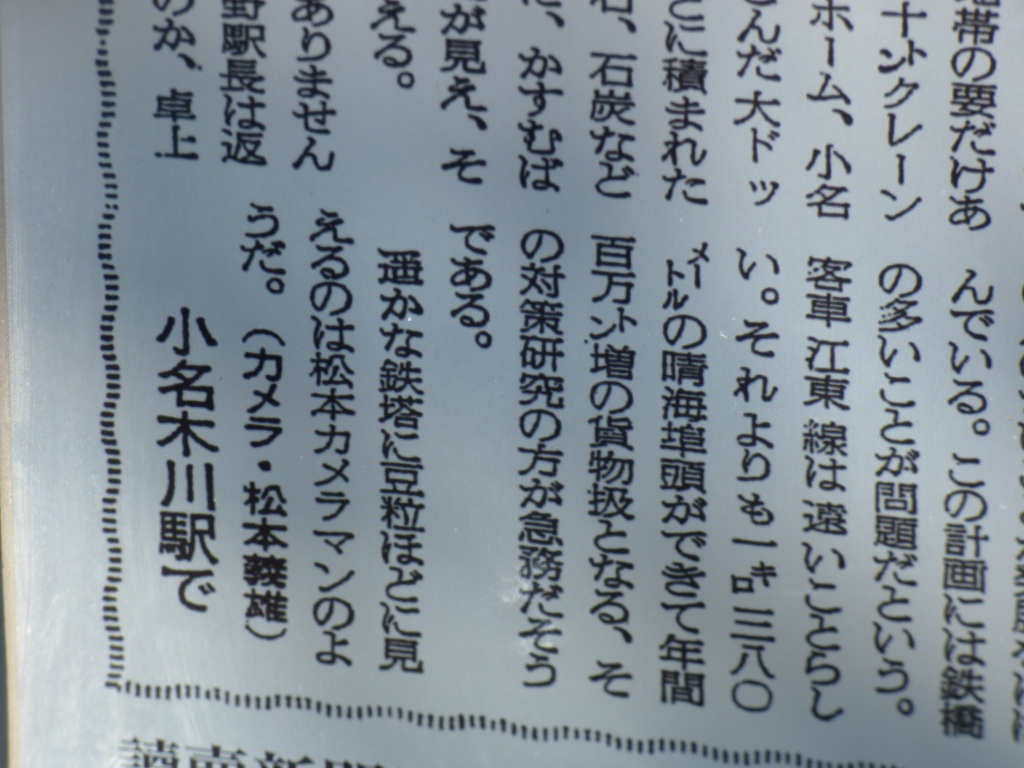 帯の要だけあ
十㌧クレーン
ホーム、小名
んだ大ドッ
に積まれた
、石炭など
、かすむば
が見え、そ
える。
ありません
野駅長は返
のか、卓上
んでいる。この計画には鉄橋
の多いことが問題だという。
客車江東線は遠いことらし
い。それよりも一㌔三八〇
㍍の晴海埠頭ができて年間
百万㌧増の貨物扱となる、そ
の対策研究の方が急務だそう
である。
遥かな鉄塔に豆粒ほどに見
えるのは松本カメラマンのよ
うだ。(カメラ・松本義雄)
小名木川駅で